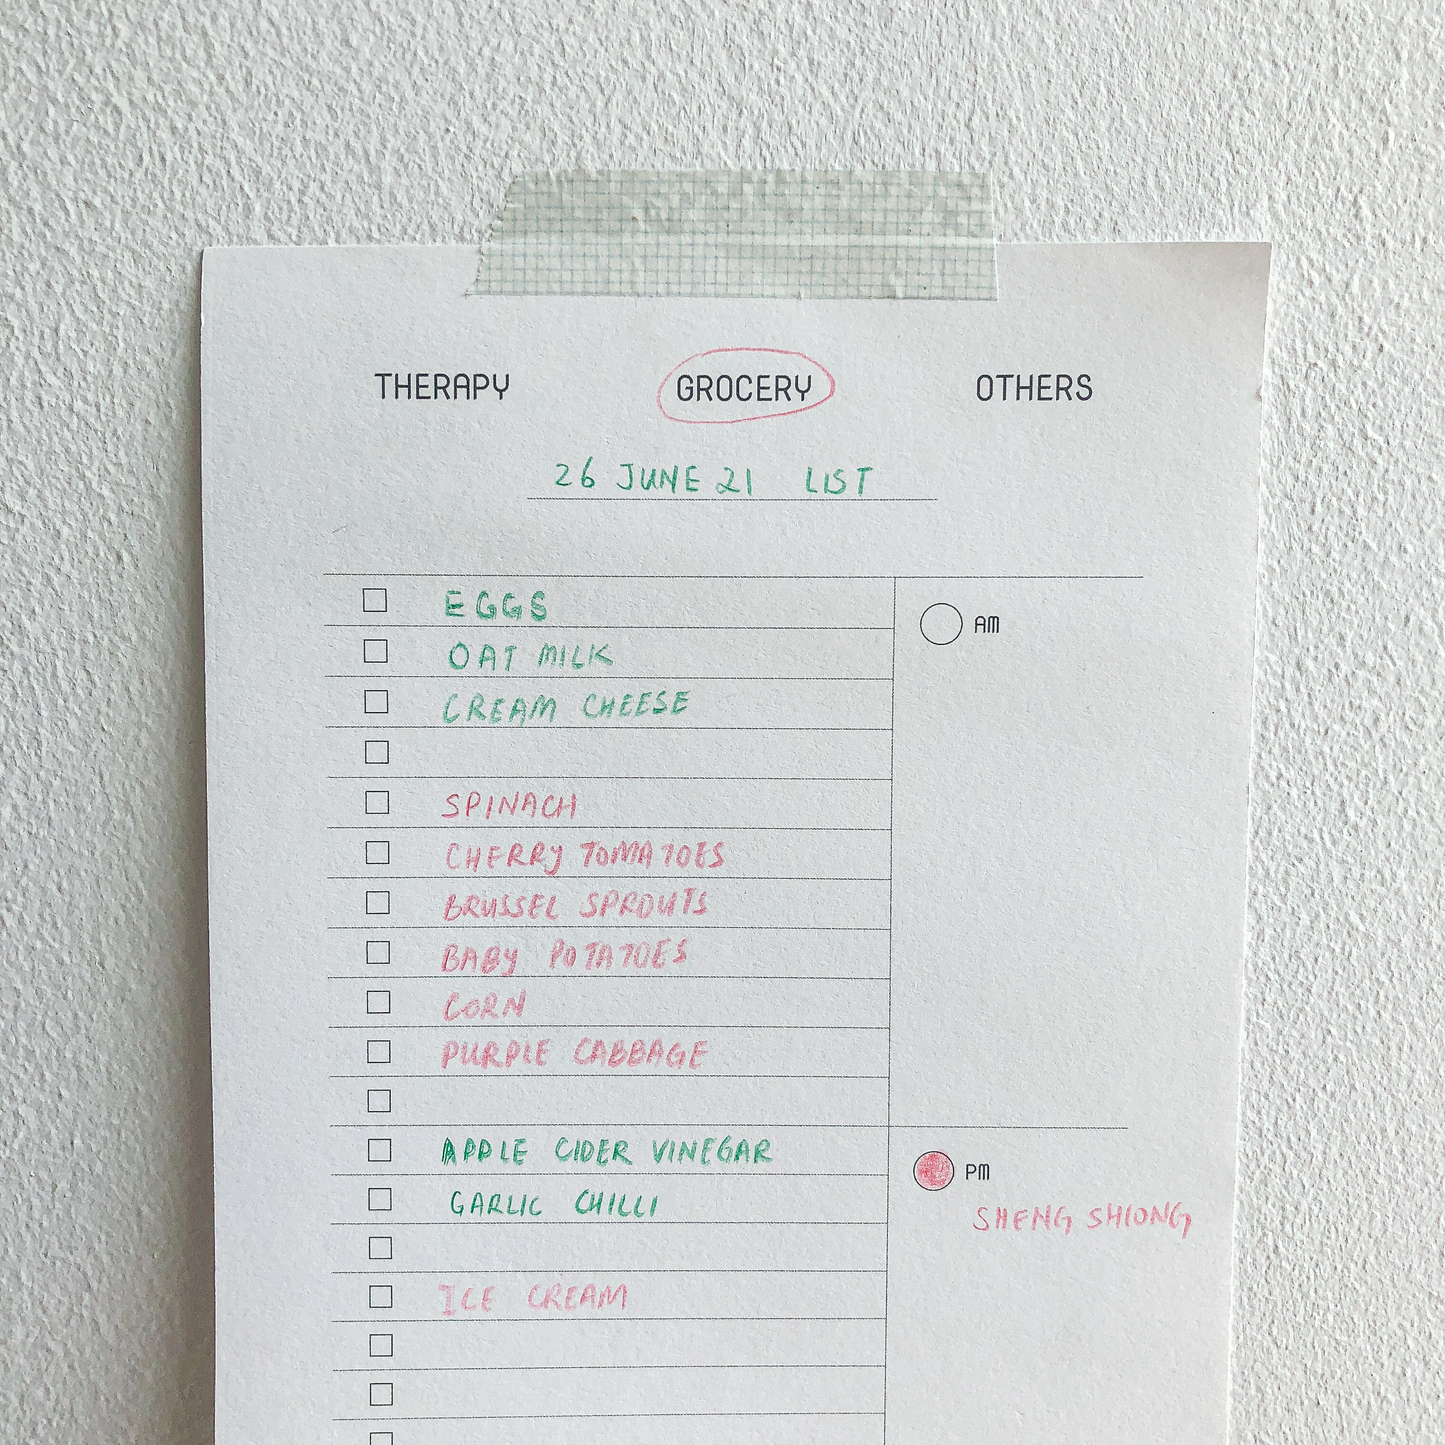 THERAPY GROCERY OTHERS
26 JUNE 21 LIST
EGGS
AM
OAT MILK
CREAM CHEESE
SPINACH
CHERRY TOMATOES
BRUSSEL SPROUTS
BABY POTATOES
CORN
PURPLE CABBAGE
APPLE CIDER VINEGAR
GARLIC CHILLI
ICE CREAM
PM
SHENG SHIONG